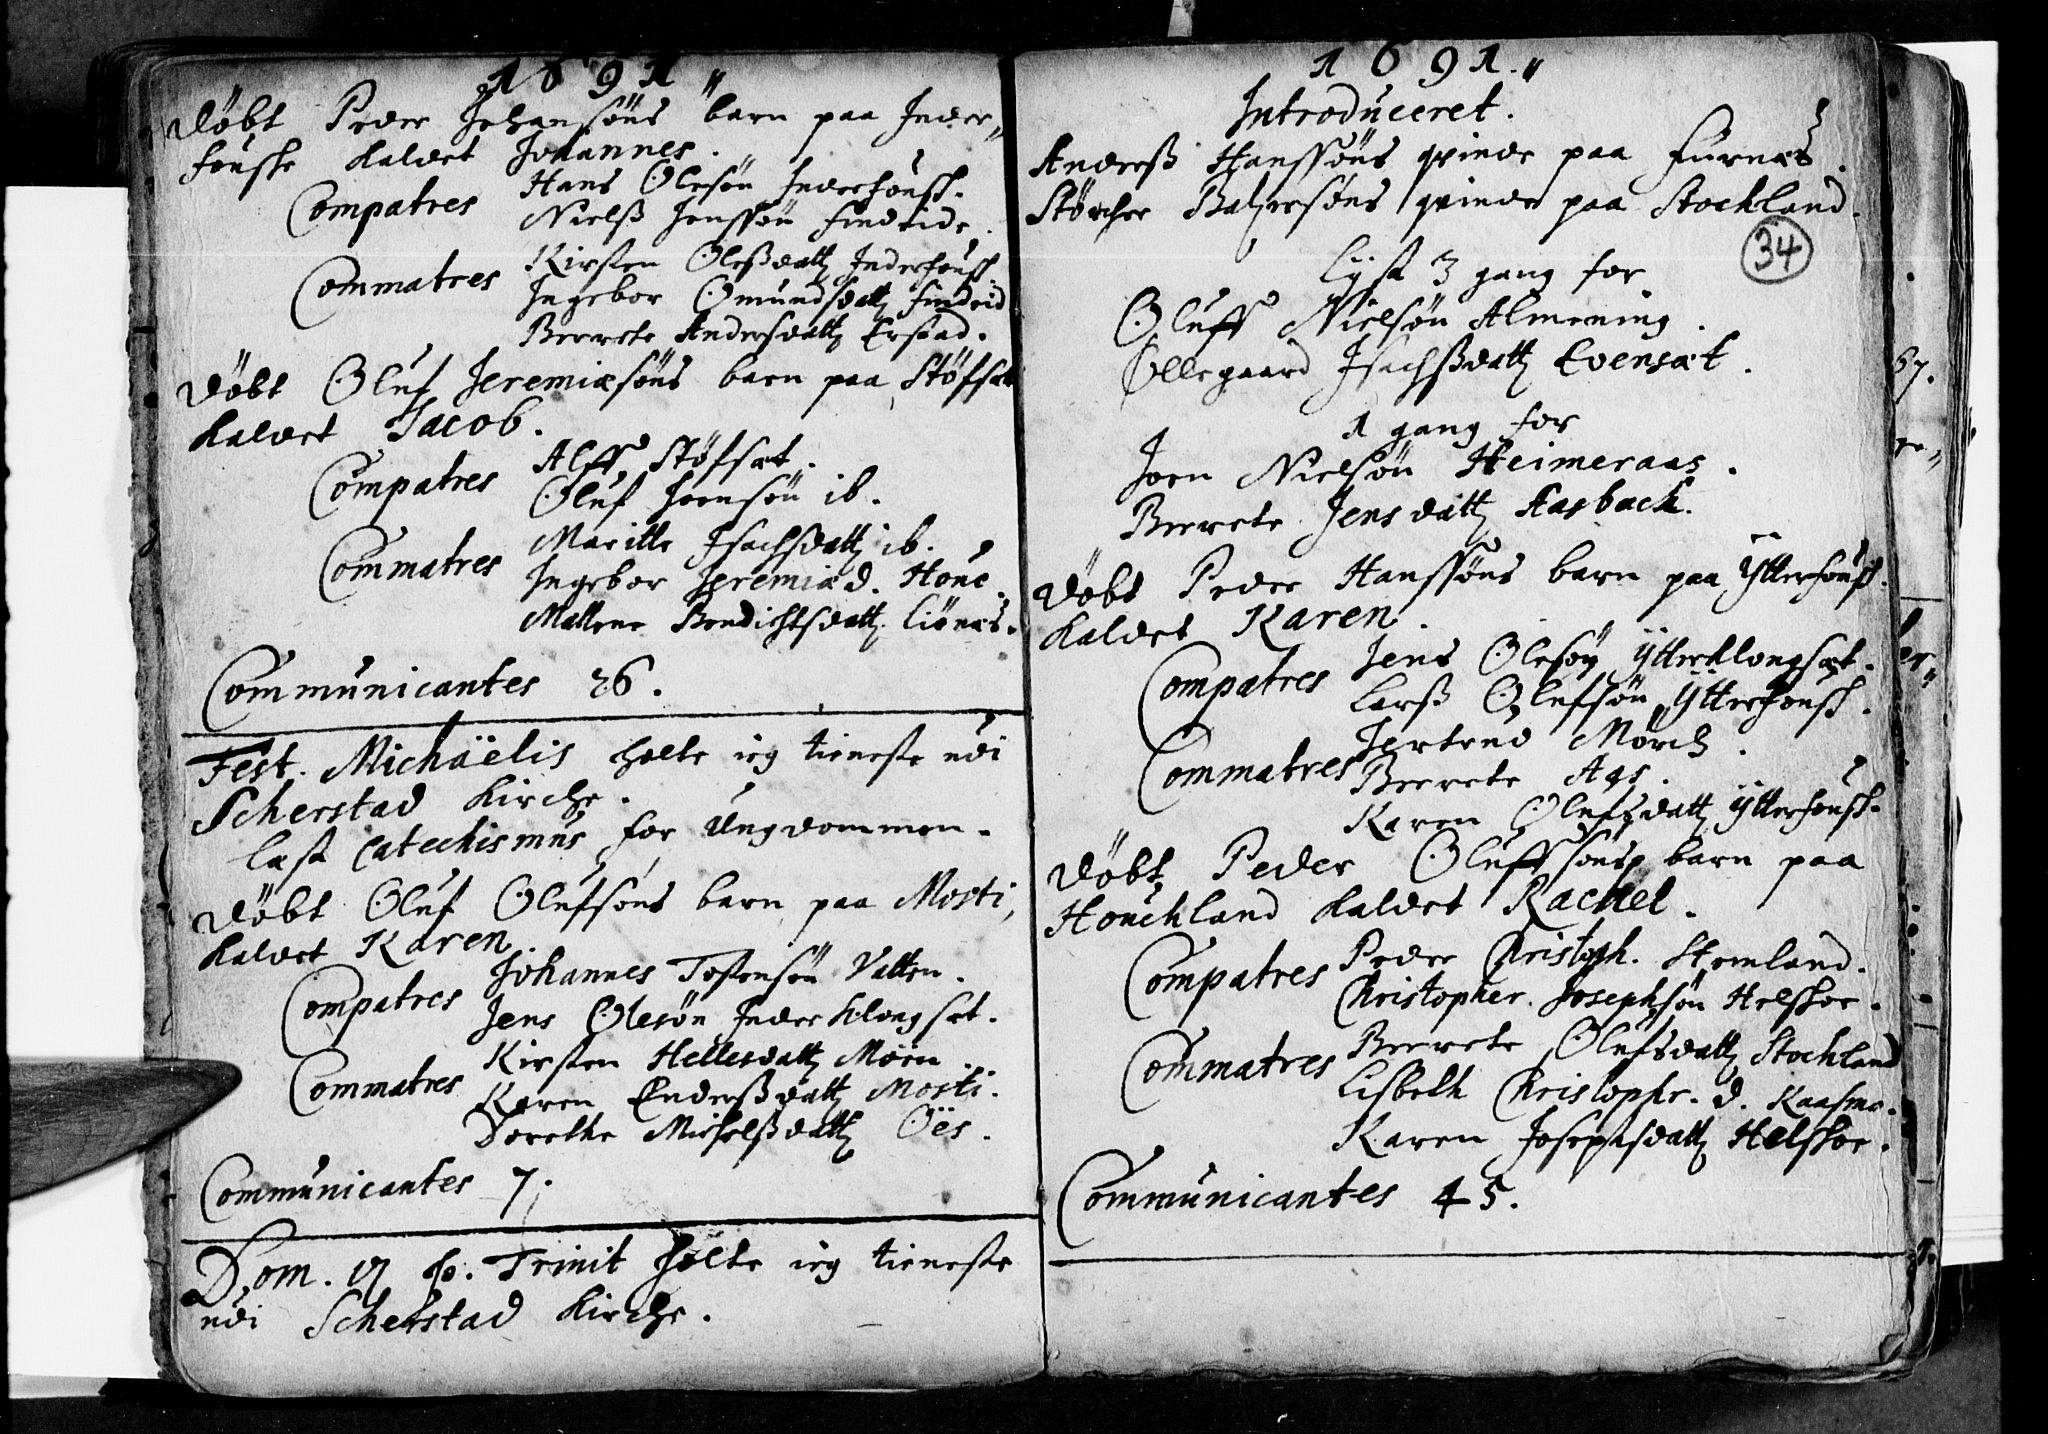 1691 "
Døbt Peder Johansøns barn paa Inder,,
fouske kaldet Johannes.
Compatres
Hans Olesøn Inderfousk.
Nielß Jenssøn findeide.
Commatres
Kirsten Oleßdatt Inderfousk
Ingebor Omundsdatt findeid
Beerete Andersdatt Erstad.
Døbt Oluf Jeremiæsøns barn paa Støfsæt
kaldet Jacob.
Compatres
Alff Støfsæt.
Oluf Joensøn ib.
Commatres
Maritte Isachsdatt ib.
Ingebor Jeremiæ d. Houc.
Mallene Bendichtsdatt Liønæs.
Communicantes 26.
Fest. Michäelis holte ieg tieneste udi
Scherstad Kirche.
Læst Catechismus for Ungdommen.
Døbt Oluf Olufsøns barn paa Mosti,
kaldet Karen.
Compatres
Johannes Tostensøn Vatten.
Jens Olesøn Inder Klongsæt.
Commatres
Kirsten Hellesdatt Moen.
Karen Enderßdatt Mosti.
Dorethe Michelßdatt Öes.
Communicantes 7.
Dom. 17 p. Trinit holte ieg tieneste
udi Scherstad Kirche.
1691."
Introduceret.
Anderß Hanssøns qvinde paa Furnæs.
Størcher Baltzersøns qvinde paa Stochland.
34
Lyst 3 gang for
Oluff Nielsøn Almening.
Ollegaard Isachßdatt Evensæt.
1 gang for
Joen Nielsøn Heimeraas.
Beerete Jensdatt Aasback.
Døbt Peder Hanssøns barn paa Ytterfousk.
kaldet Karen.
Compatres
Jens Olesøn Ytterklongsæt.
Larß Olufsøn Ytterfousk.
Commatres
Jertrud Mörch.
Beerete Aas.
Karen Olufsdatt Ytterfousk.
Døbt Peder Oluffsøns barn paa
Houchland kaldet Rachel.
Compatres
Peder Christoph. Stemland.
Christopher Josephsøn Helskoe.
Commatres
Beerete Olufsdatt Stochland
Lisbeth Christophr. d. Kaasmo.
Karen Josephsdatt Helskoe.
Communicantes 45.